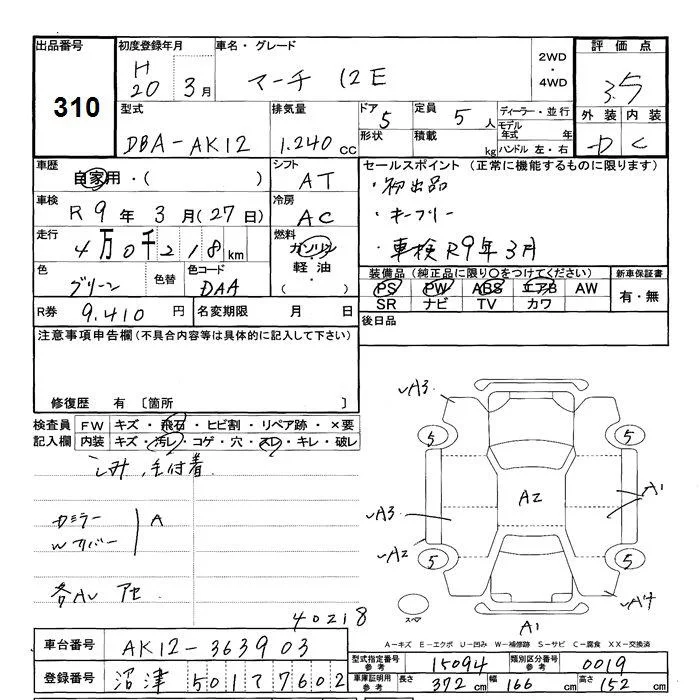 出品番号 初度登録年月 車名・グレード 評価点
310
H20 3月 マーチ 12E 2WD・4WD 3.5
外装 内装
D C
型式 排気量 ドア 5 定員 5人 ディーラー・並行
形状 積載 kg モデル年式 年
ハンドル 左・右
DBA-AK12 1.240cc
車歴 シフト セールスポイント (正常に機能するものに限ります)
自家用・( ) AT ・初出品
車検 冷房 ・キーフリー
R9年3月(27日) AC ・車検R9年3月
走行 燃料
4万0千218km ガソリン
軽油・( )
色 色替 色コード 装備品(純正品に限り○をつけてください) 新車保証書
グリーン DAA PS PW ABS エアB AW 有・無
SR ナビ TV カワ
R券 9.410円 名変期限 月 日 後日品
注意事項申告欄(不具合内容等は具体的に記入して下さい)
修復歴 有 〔箇所 〕
検査員 FW キズ・飛石・ヒビ割・リペア跡・×要
記入欄 内装 キズ・汚レ・コゲ・穴・スレ・キレ・破レ
シミ,毛付着
カミラー A
Wカバー
各AU
40218
A3
5 5
A1
A2
A3
A2
5 5
A4
スペア
A1
A-キズ E-エクボ U-凹み W-補修跡 S-サビ C-腐食 XX-交換済
車台番号 AK12-363903
登録番号 沼津 501 7602
型式指定番号 参考 15094 類別区分番号 参考 0019
車庫証明用 参考 長さ 372cm 幅 166cm 高さ 152cm